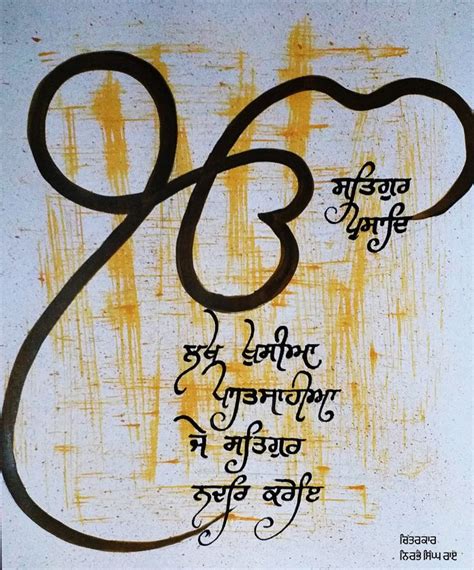 ੴ
ਸਤਿਗੁਰ
ਪ੍ਰਸਾਦਿ
ਲਖ ਖੁਸੀਆ
ਪਾਤਸਾਹੀਆ
ਜੇ ਸਤਿਗੁਰ
ਨਦਰਿ ਕਰੇਇ
ਚਿੱਤਰਕਾਰ
ਨਿਰਭੈ ਸਿੰਘ ਰਾਏ